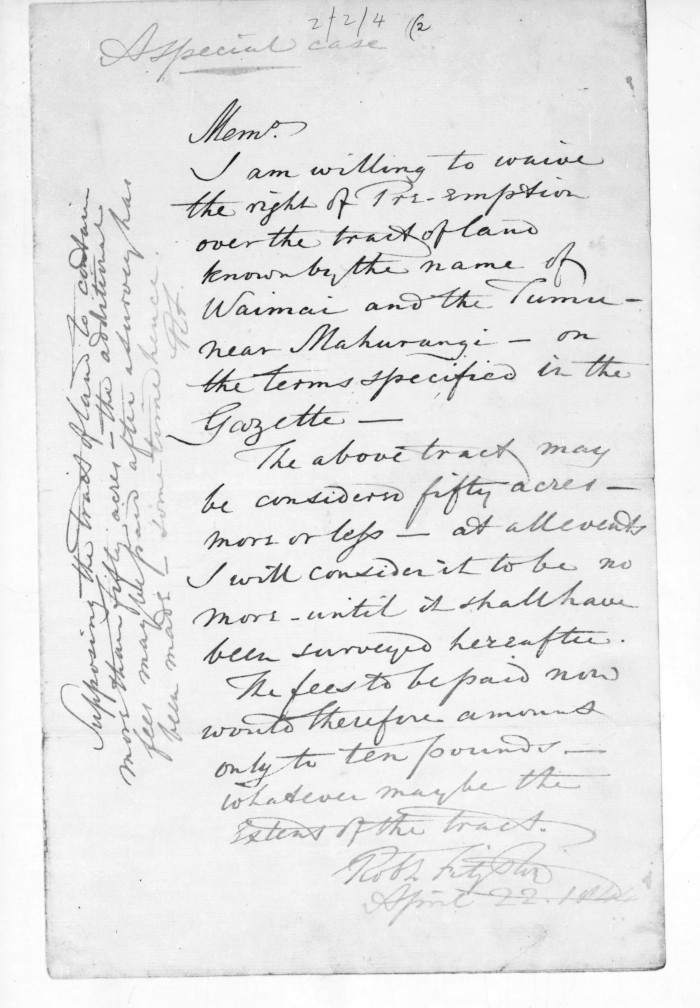 2/2/4 (2
A special case
Memo.
I am willing to waive
the right of Pre-emption
over the tract of land
known by the name of
Waimai and the Tumu -
near Mahurangi - on
the terms specified in the
Gazette -
The above tract may
be considered fifty acres -
more or less - at all events
I will consider it to be no
more - until it shall have
been surveyed hereafter.
The fees to be paid now
would therefore amount
only to ten pounds -
whatever may be the
Extent of the tract.
Robt. FitzRoy
April 22. 1844
Supposing the tract of land to contain
more than fifty acres - the additional
fees may be paid after a survey has
been made - some time hence.